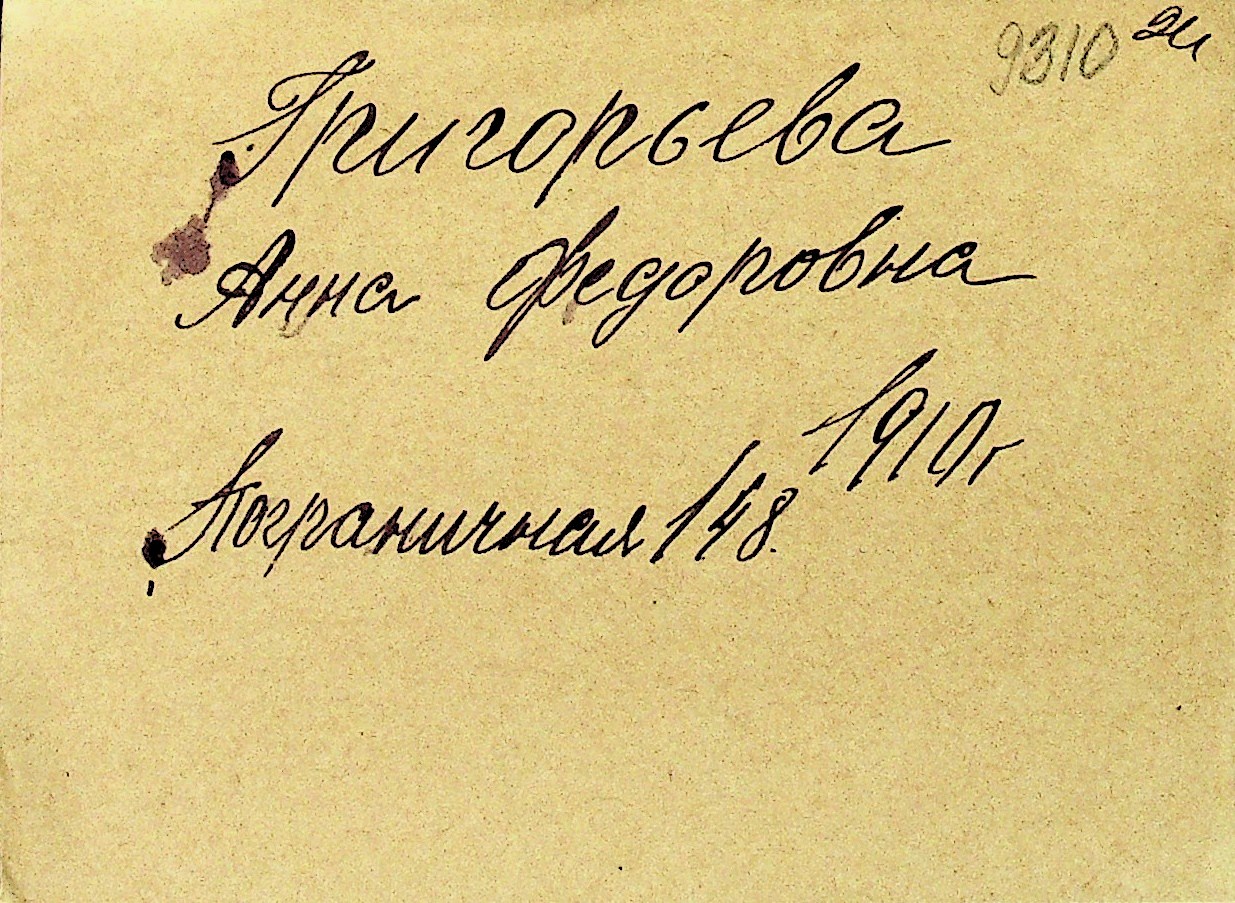 9310
Григорьева
Анна Федоровна
1910г
Пограничная 148.